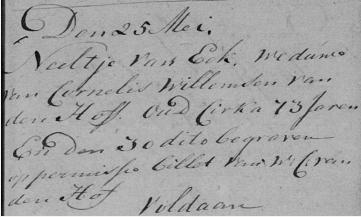 Den 25 Mei.
Neeltje van Eck. weduwe
van Cornelis Willemsen van
den Hoff. oud Cirka 73 Jaren
En den 30 dito begraven
op permissie billet van
den Hof
Voldaan